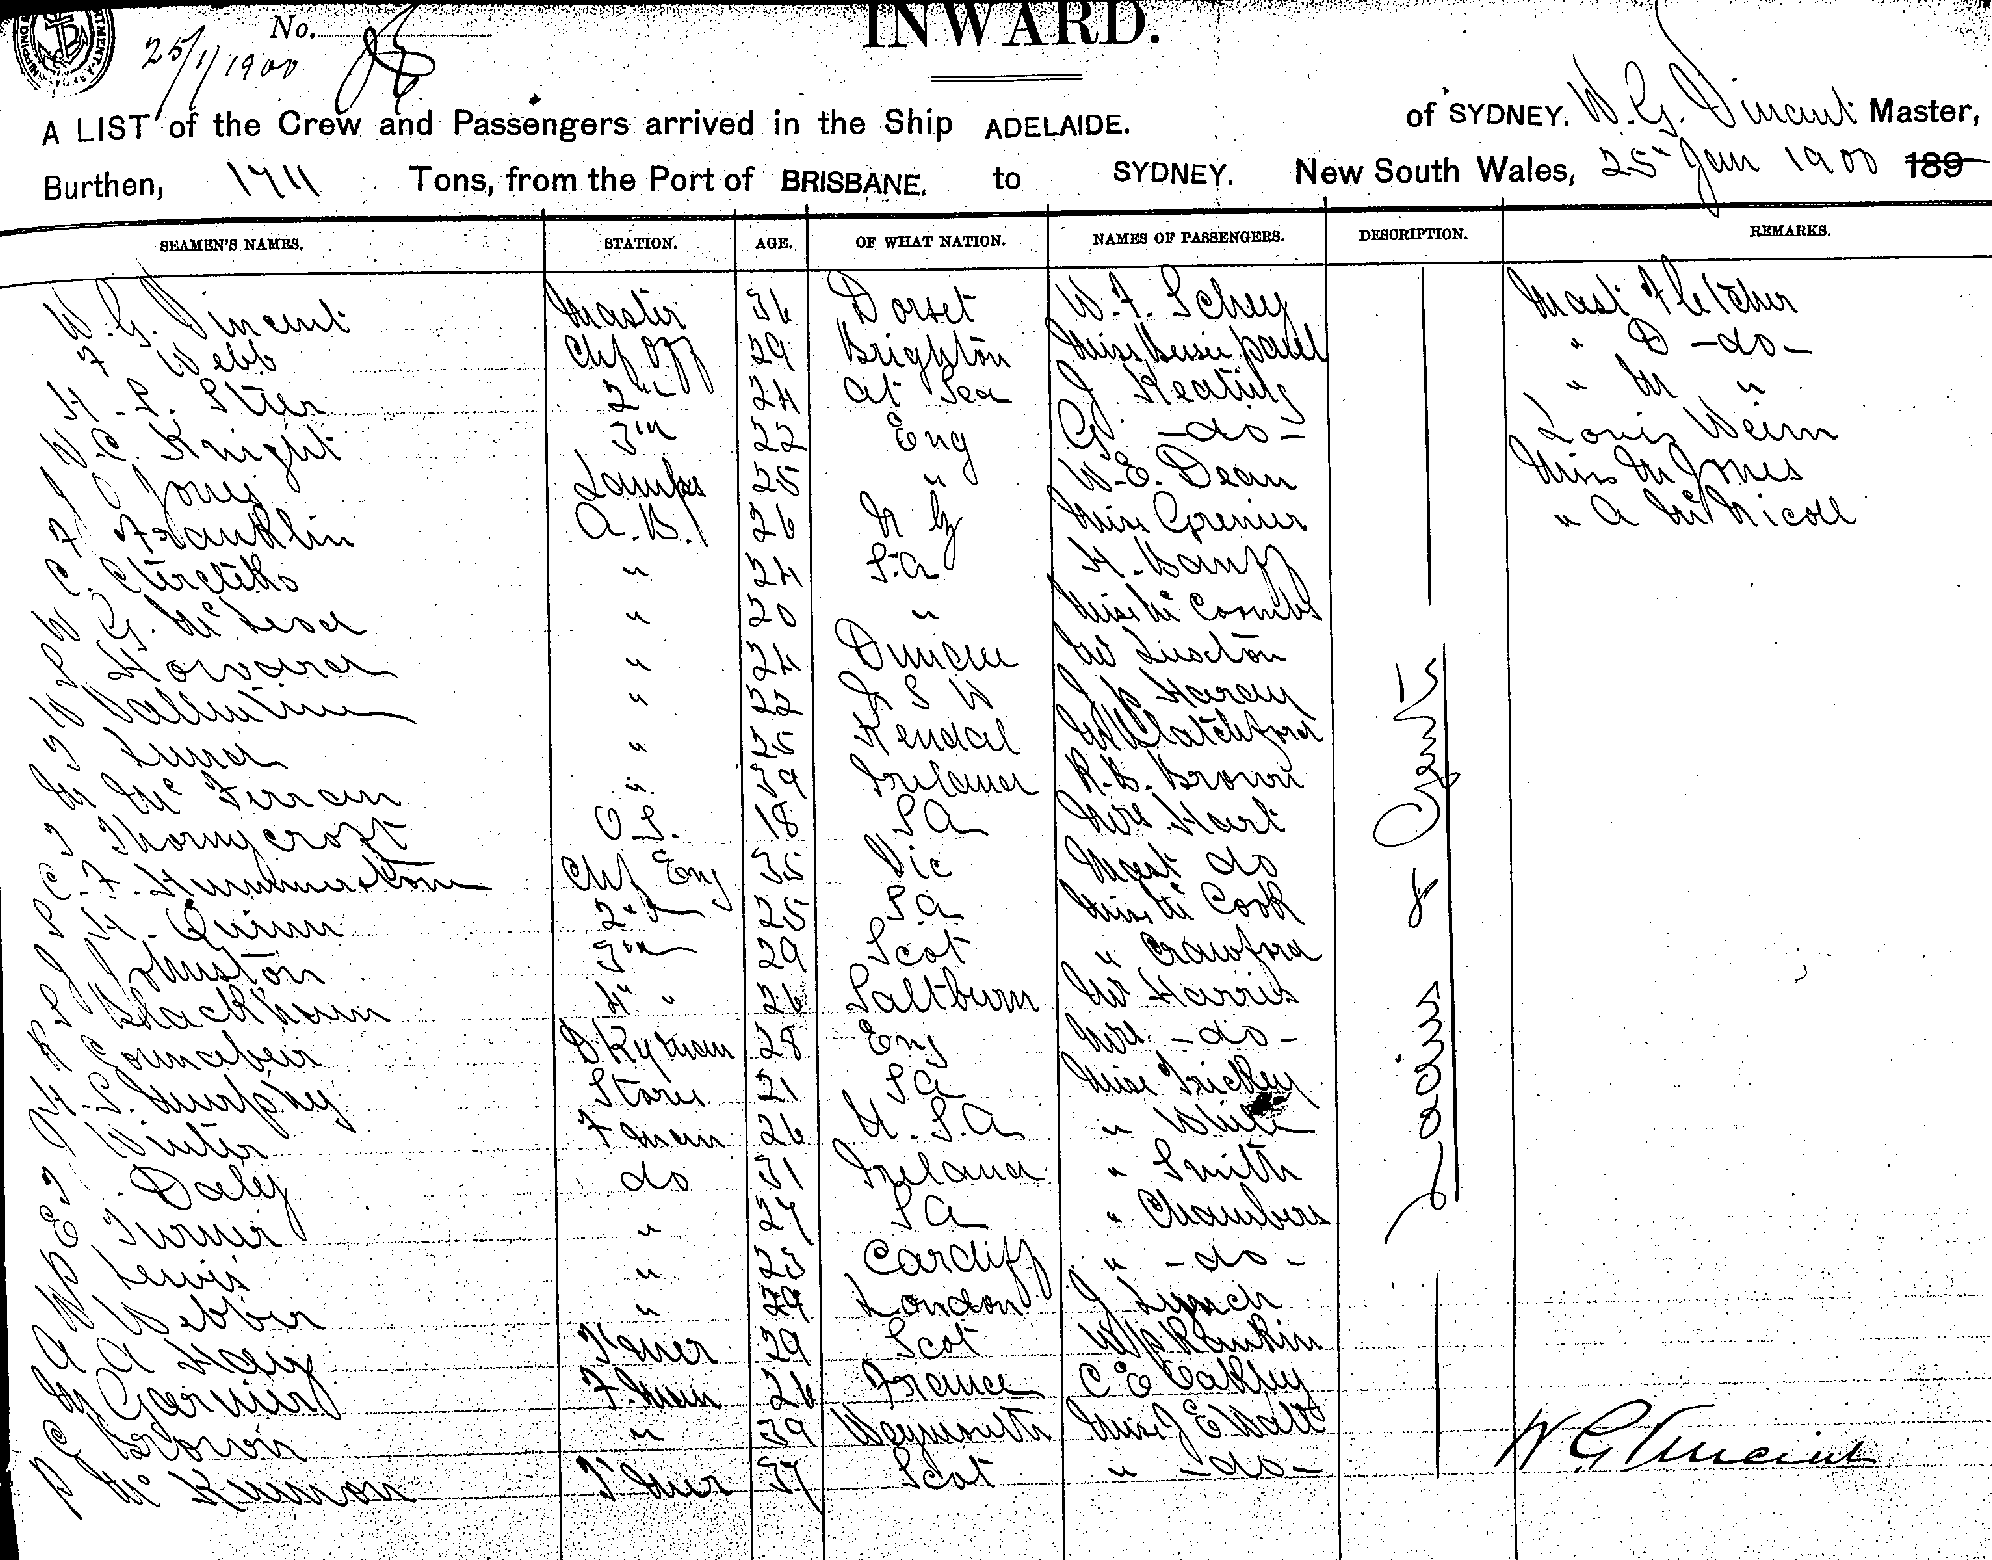 INWARD.
No.
25/1/1900
A LIST of the Crew and Passengers arrived in the Ship ADELAIDE. of SYDNEY. W. G. Vincent Master,
Burthen, 1711 Tons, from the Port of BRISBANE. to SYDNEY. New South Wales, 25 Jan 1900 189
SEAMEN'S NAMES. STATION. AGE. OF WHAT NATION. NAMES OF PASSENGERS. DESCRIPTION. REMARKS.
W. G. Vincent Master 36 Dorset W. F. Schey Mast Fletcher
F Webb Chf Off 29 Brighton Miss Bessie " D -do-
H. S. 2nd 24 At Sea J. Keating " M "
W. C. Knight 3rd 22 Eng G. -do- Louis
J O Jones Lamps 25 " W. E. Dean Miss M Jones
F Franklin A. B. 26 N Z Miss Grenier " A McNicoll
C. " 24 S. A H. Banff
W G. McLeod " 20 " Miss McCoombs
S Howard " 24 Dundee Mr Luxton
W Vallentine " 22 N S W J P Hardy
T Lund " 25 Kendal Mr Blatchford
M McFerran " 39 Ireland R. B. Brown
T Thornycroft O. S. 18 S A Mrs Hart
C. F. Hummerstone Chf Eng 35 Vic Mast do
S H. Quinn 2nd 25 S. A Miss McCook
J Johnston 3rd 29 Scot " Crawford
S Blackburn 4th " 26 Saltburn Mr Harris
R DKyman 28 Eng Mrs -do-
H. S. Murphy Stores 21 S A Miss Trickey
J Winter F man 26 U. S. A " White
T Daley do 31 Ireland " Smith
E Turner " 27 S A " Chambers
P Lewis " 23 Cardiff " -do-
W Webber " 29 London J Lynch
A A Hay T'mer 29 Scot W P Rankin
M Garnier F. man 26 France C E Oakley
G Brown " 39 Weymouth Miss J E Watt
P McKinnon T'mer 37 Scot " -do-
Ladies & Gents
W G Vincent